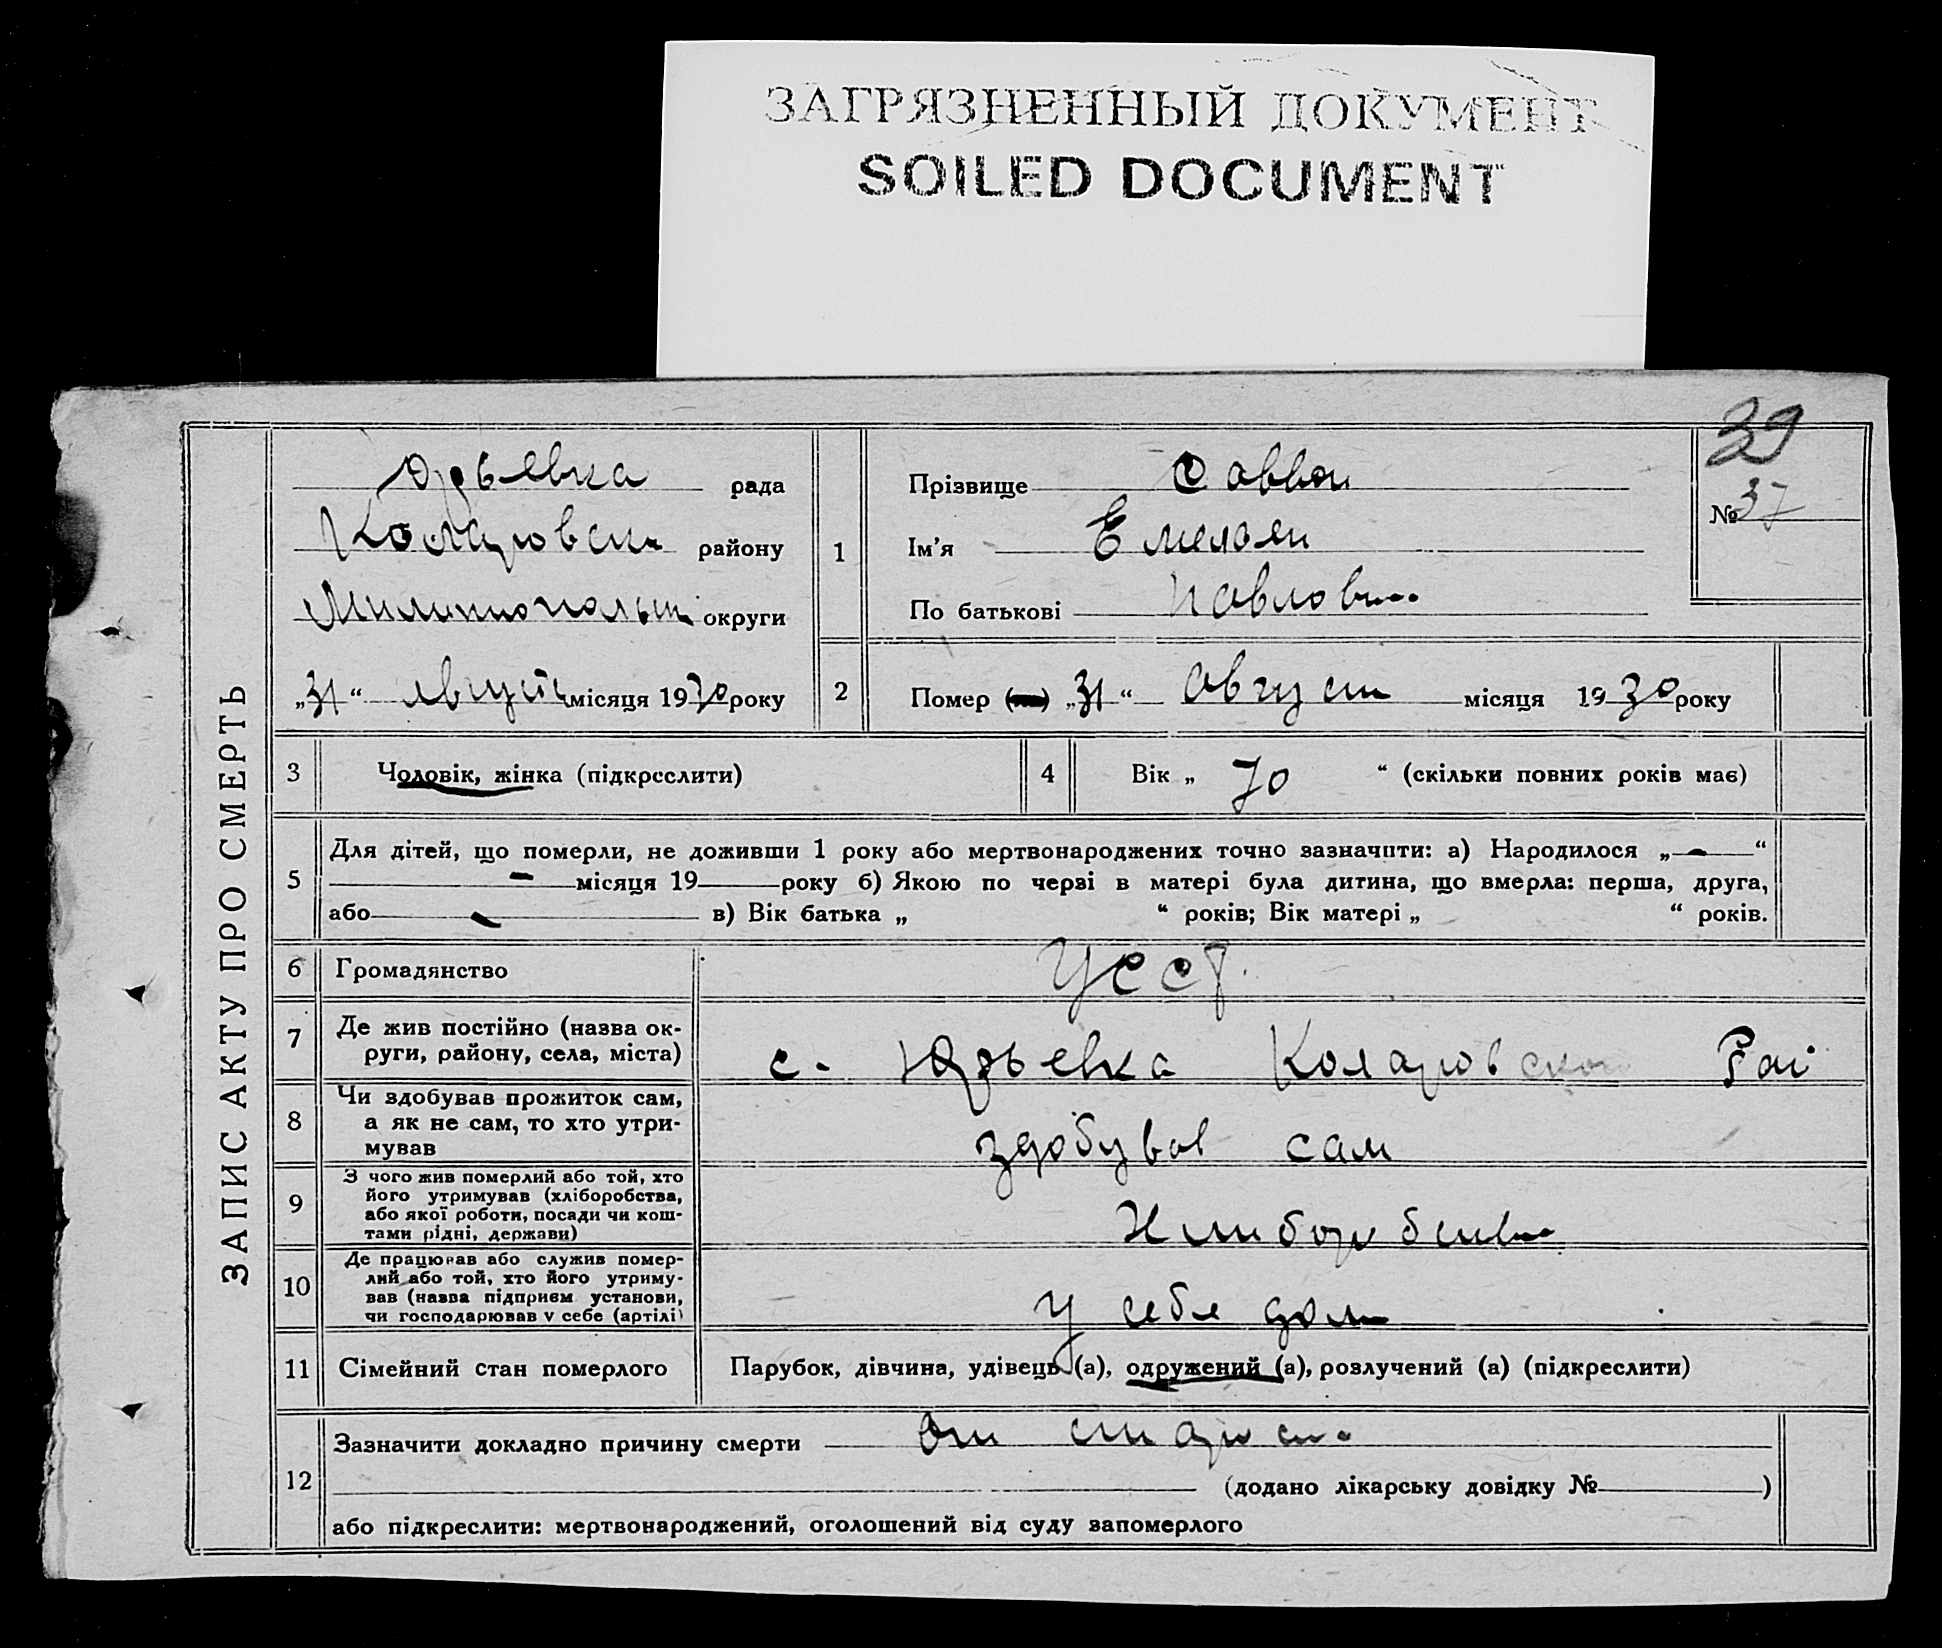 ЗАГРЯЗНЕННЫЙ ДОКУМЕНТ
SOILED DOCUMENT
ЗАПИС АКТУ ПРО СМЕРТЬ
39
№ 37
Юрьевка рада
Коларовськ району
Мелитопольск округи
„31“ август місяця 1930 року
1
Прізвище Савви
Ім'я Емельян
По батькові Павлович
2
Помер „31“ август місяця 1930 року
3
Чоловік, жінка (підкреслити)
4
Вік „70“ (скільки повних років має)
5
Для дітей, що померли, не доживши 1 року або мертвонароджених точно зазначити: а) Народилося „—“
— місяця 19 року б) Якою по черзі в матері була дитина, що вмерла: перша, друга,
або — в) Вік батька „ “ років; Вік матері „ “ років.
6
Громадянство
УССР.
7
Де жив постійно (назва ок-
руги, району, села, міста)
с. Юрьевка Коларовского Рай
8
Чи здобував прожиток сам,
а як не сам, то хто утри-
мував
здобував сам
9
З чого жив померлий або той, хто
його утримував (хліборобства,
або якої роботи, посади чи кош-
тами рідні, держави)
10
Де працював або служив помер-
лий або той, хто його утриму-
вав (назва підприєм установи,
чи господарював у себе (артілі)
у себе дома
11
Сімейний стан померлого
Парубок, дівчина, удівець (а), одружений (а), розлучений (а) (підкреслити)
12
Зазначити докладно причину смерти от старости
(додано лікарську довідку № )
або підкреслити: мертвонароджений, оголошений від суду запомерлого